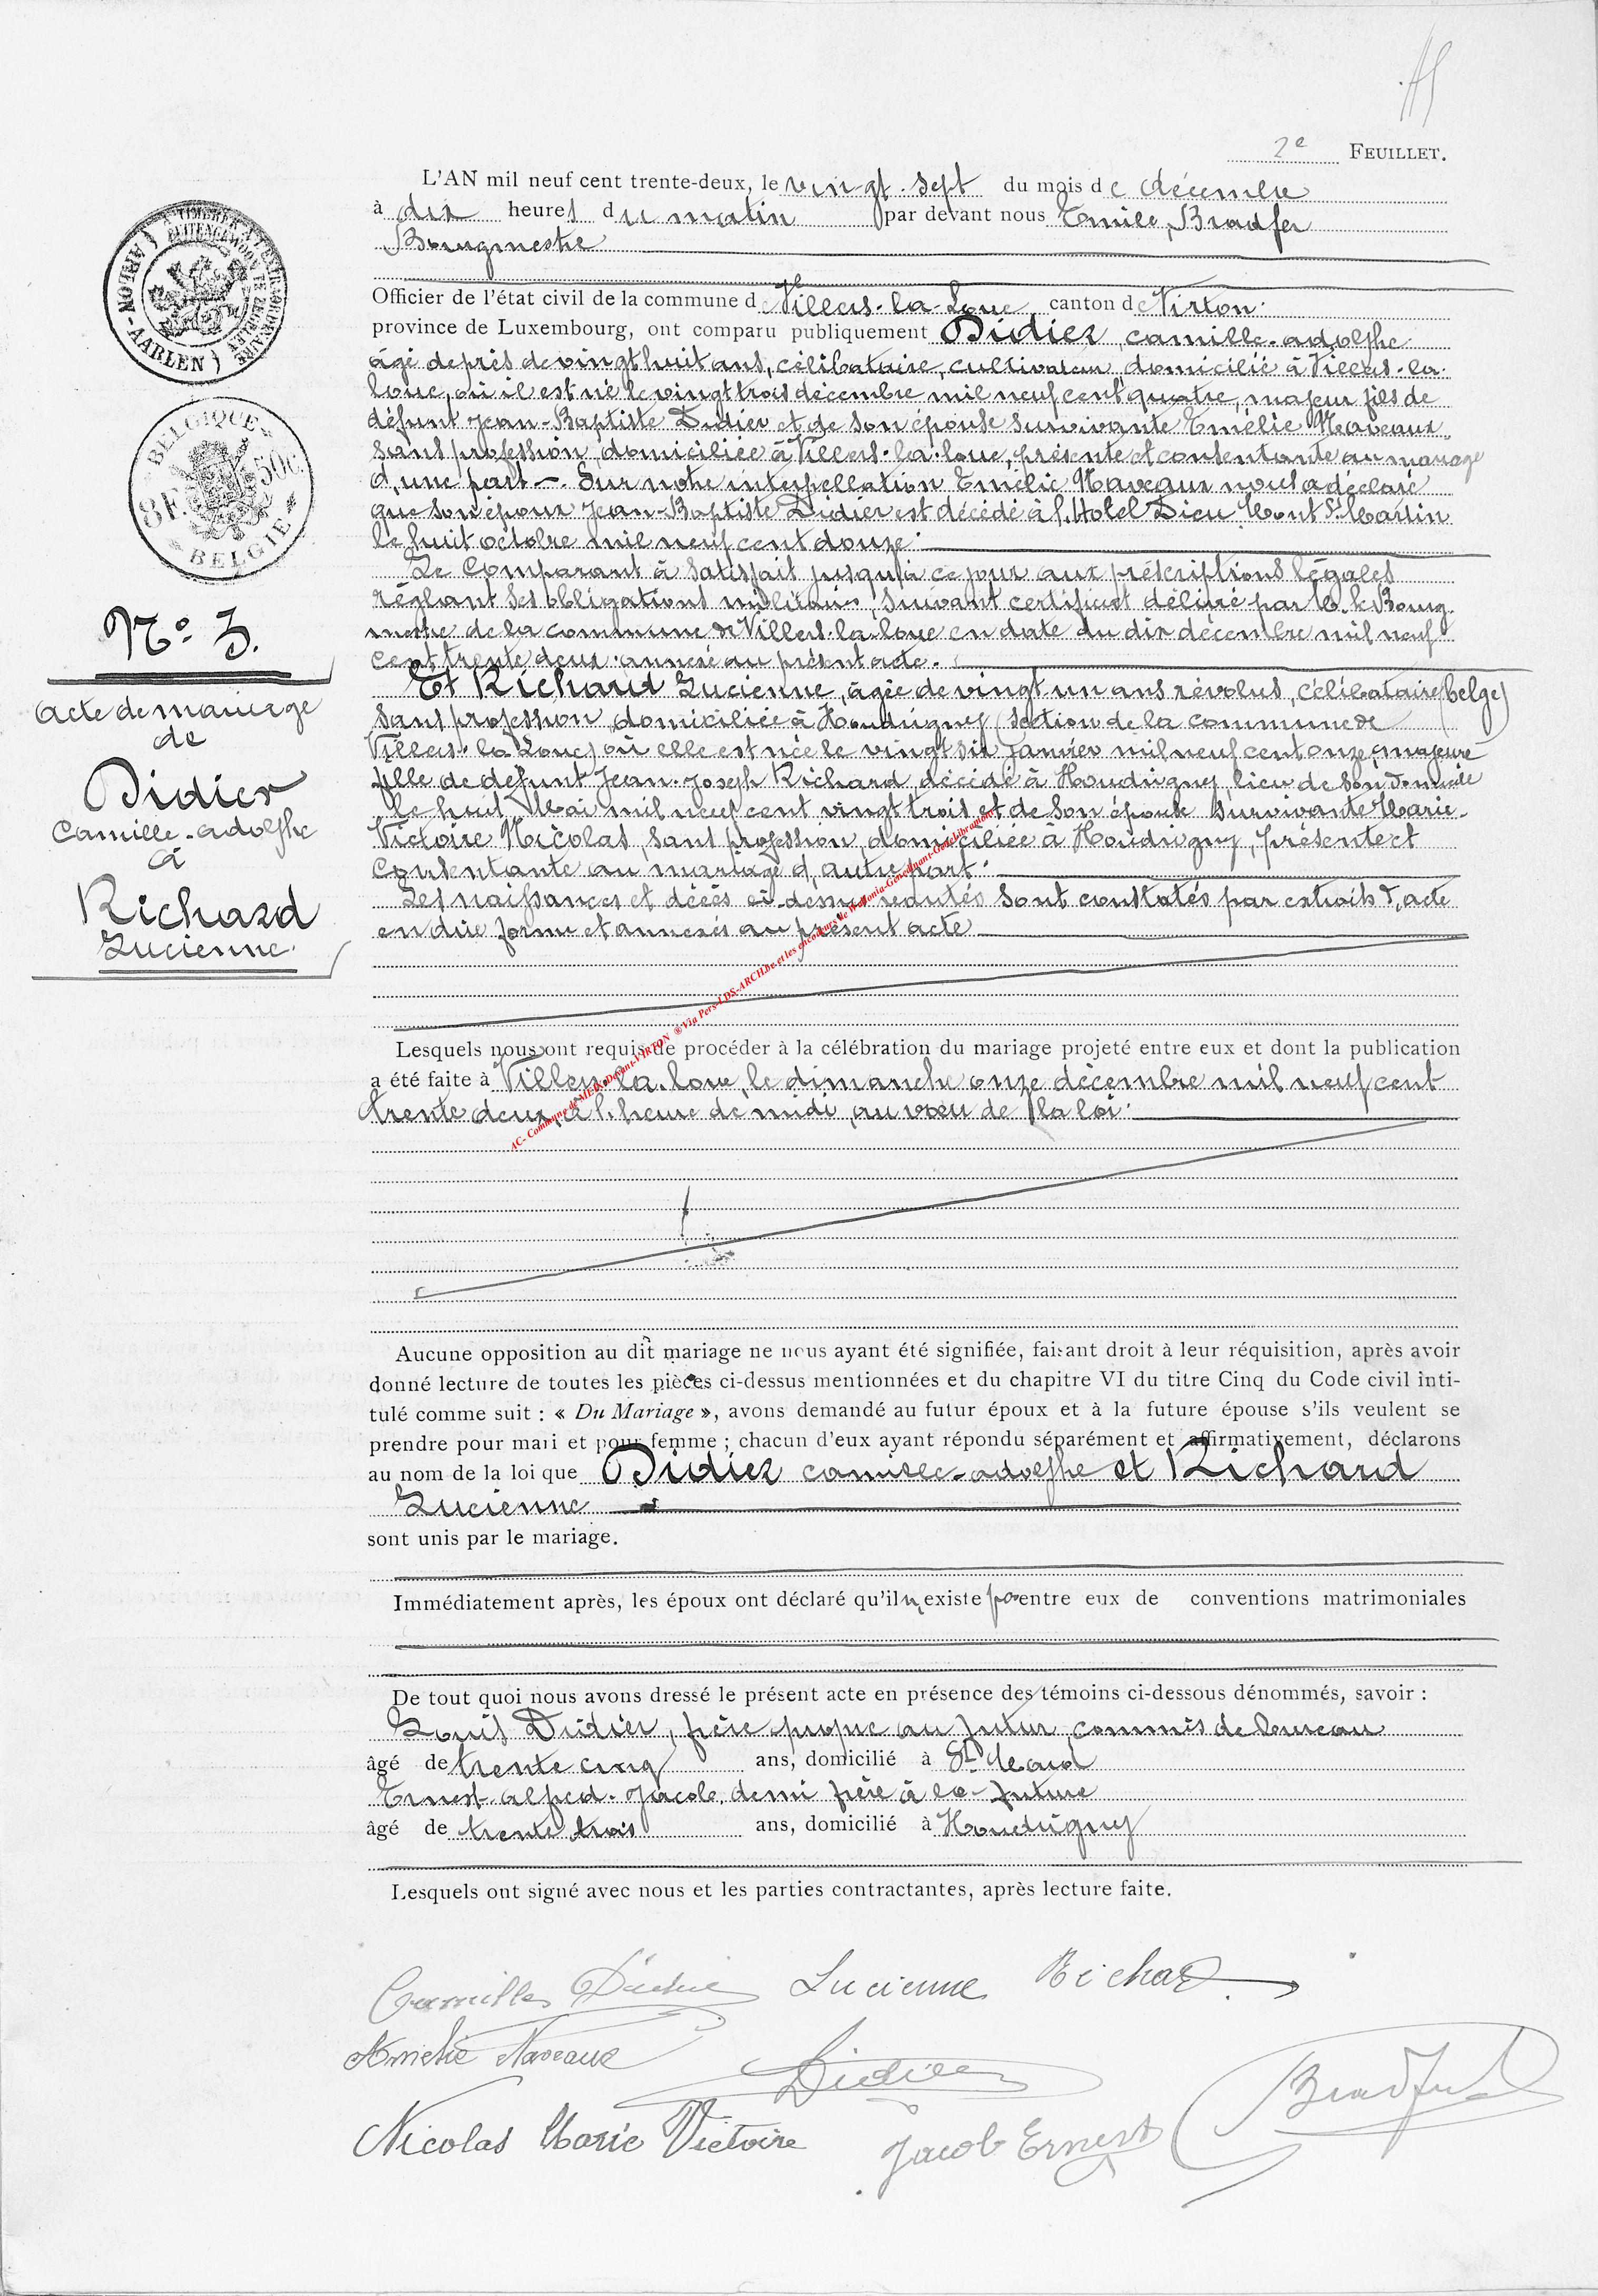 2e FEUILLET.
L'AN mil neuf cent trente-deux, le vingt-sept du mois de décembre
à dix heures du matin par devant nous Emile Bradfer
Bourgmestre
Officier de l'état civil de la commune de Villers-la-Loue canton de Virton.
province de Luxembourg, ont comparu publiquement Didier, camille-adolphe
âgé de près de vingt huit ans, célibataire, cultivateur, domicilié à Villers-la-
loue, où il est né le vingt trois décembre mil neuf cent quatre, majeur fils de
défunt Jean-Baptiste Didier et de son épouse survivante Emélie Naveaux,
sans profession, domiciliée à Villers-la-loue, présente et consentante au mariage
d'une part -. Sur notre interpellation Emélie Naveaux nous a déclaré
que son époux Jean-Baptiste Didier est décédé à l'Hotel Dieu Mont St Martin
le huit octobre mil neuf cent douze.
Le Comparant à satisfait jusqu'à ce jour aux préscriptions légales
réglant ses obligations militaires, suivant certificat délivré par M. le Bourg-
mestre de la commune de Villers-la-loue en date du dix décembre mil neuf
cent trente deux, annexé au présent acte.
Et Richard Lucienne, âgée de vingt un ans révolus, célibataire (belge)
sans profession domiciliée à Houdrigny (section de la commune de
Villers-la-Loue) où elle est née le vingt six Janvier mil neuf cent onze, majeure
fille de défunt Jean-Joseph Richard décédé à Houdrigny lieu de son domicile
le huit Mai mil neuf cent vingt trois et de son épouse survivante Marie-
Victoire Nicolas, sans profession, domiciliée à Houdrigny, présente et
consentante au mariage d'autre part.
Les naissances et décès ci-dessus relatés sont constatés par extraits d'acte
en due forme et annexés au présent acte
N° 3.
acte de mariage
de
Didier
Camille-adolphe
à
Richard
Lucienne.
TIMBRE A L'EXTRAORDINAIRE
BUITENGEWOON TE ZEGELEN
(ARLON - AARLEN)
BELGIQUE
8F. 50c.
BELGIE
AC- Commune de MEIX-Devant-VIRTON ®Via Pers-LDS-ARCH.be et les encodeurs de Wallonia-Gencdinant-Genchibramont
Lesquels nous ont requis de procéder à la célébration du mariage projeté entre eux et dont la publication
a été faite à Villers-la-loue, le dimanche onze décembre mil neuf cent
trente deux, à l'heure de midi, au vœu de la loi.
Aucune opposition au dit mariage ne nous ayant été signifiée, faisant droit à leur réquisition, après avoir
donné lecture de toutes les pièces ci-dessus mentionnées et du chapitre VI du titre Cinq du Code civil inti-
tulé comme suit : « Du Mariage », avons demandé au futur époux et à la future épouse s'ils veulent se
prendre pour mari et pour femme ; chacun d'eux ayant répondu séparément et affirmativement, déclarons
au nom de la loi que Didier camille-adolphe et Richard
Lucienne
sont unis par le mariage.
Immédiatement après, les époux ont déclaré qu'il n'existe pas entre eux de conventions matrimoniales
De tout quoi nous avons dressé le présent acte en présence des témoins ci-dessous dénommés, savoir :
Louis Didier, frère propre au futur, commis de bureau
âgé de trente cinq ans, domicilié à St Mard
Ernest-alfred-Jacob, demi frère à la future
âgé de trente trois ans, domicilié à Houdrigny
Lesquels ont signé avec nous et les parties contractantes, après lecture faite.
Camille Didier Lucienne Richard
Amélie Naveaux Didier Bradfer
Nicolas Marie Victoire Jacob Ernest